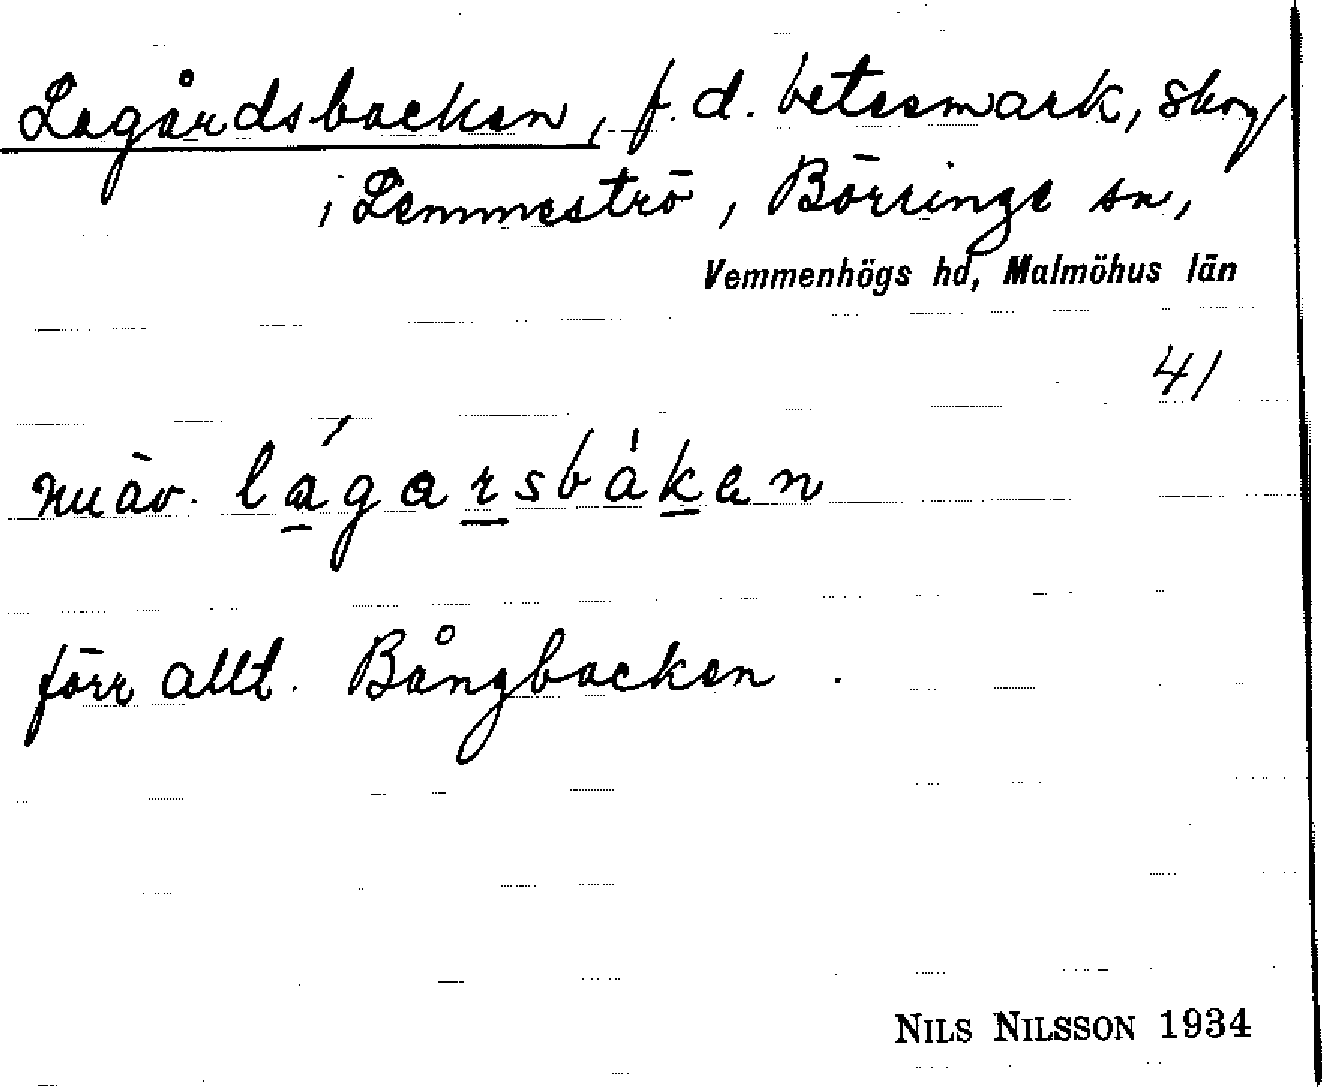 Lagårdsbacken, f.d. betesmark, skog
i Lemmeströ, Börringe sn,
Vemmenhögs hd, Malmöhus län
41
nuäv. lágarsbàken
förr allt. Bångbacken.
NILS NILSSON 1934